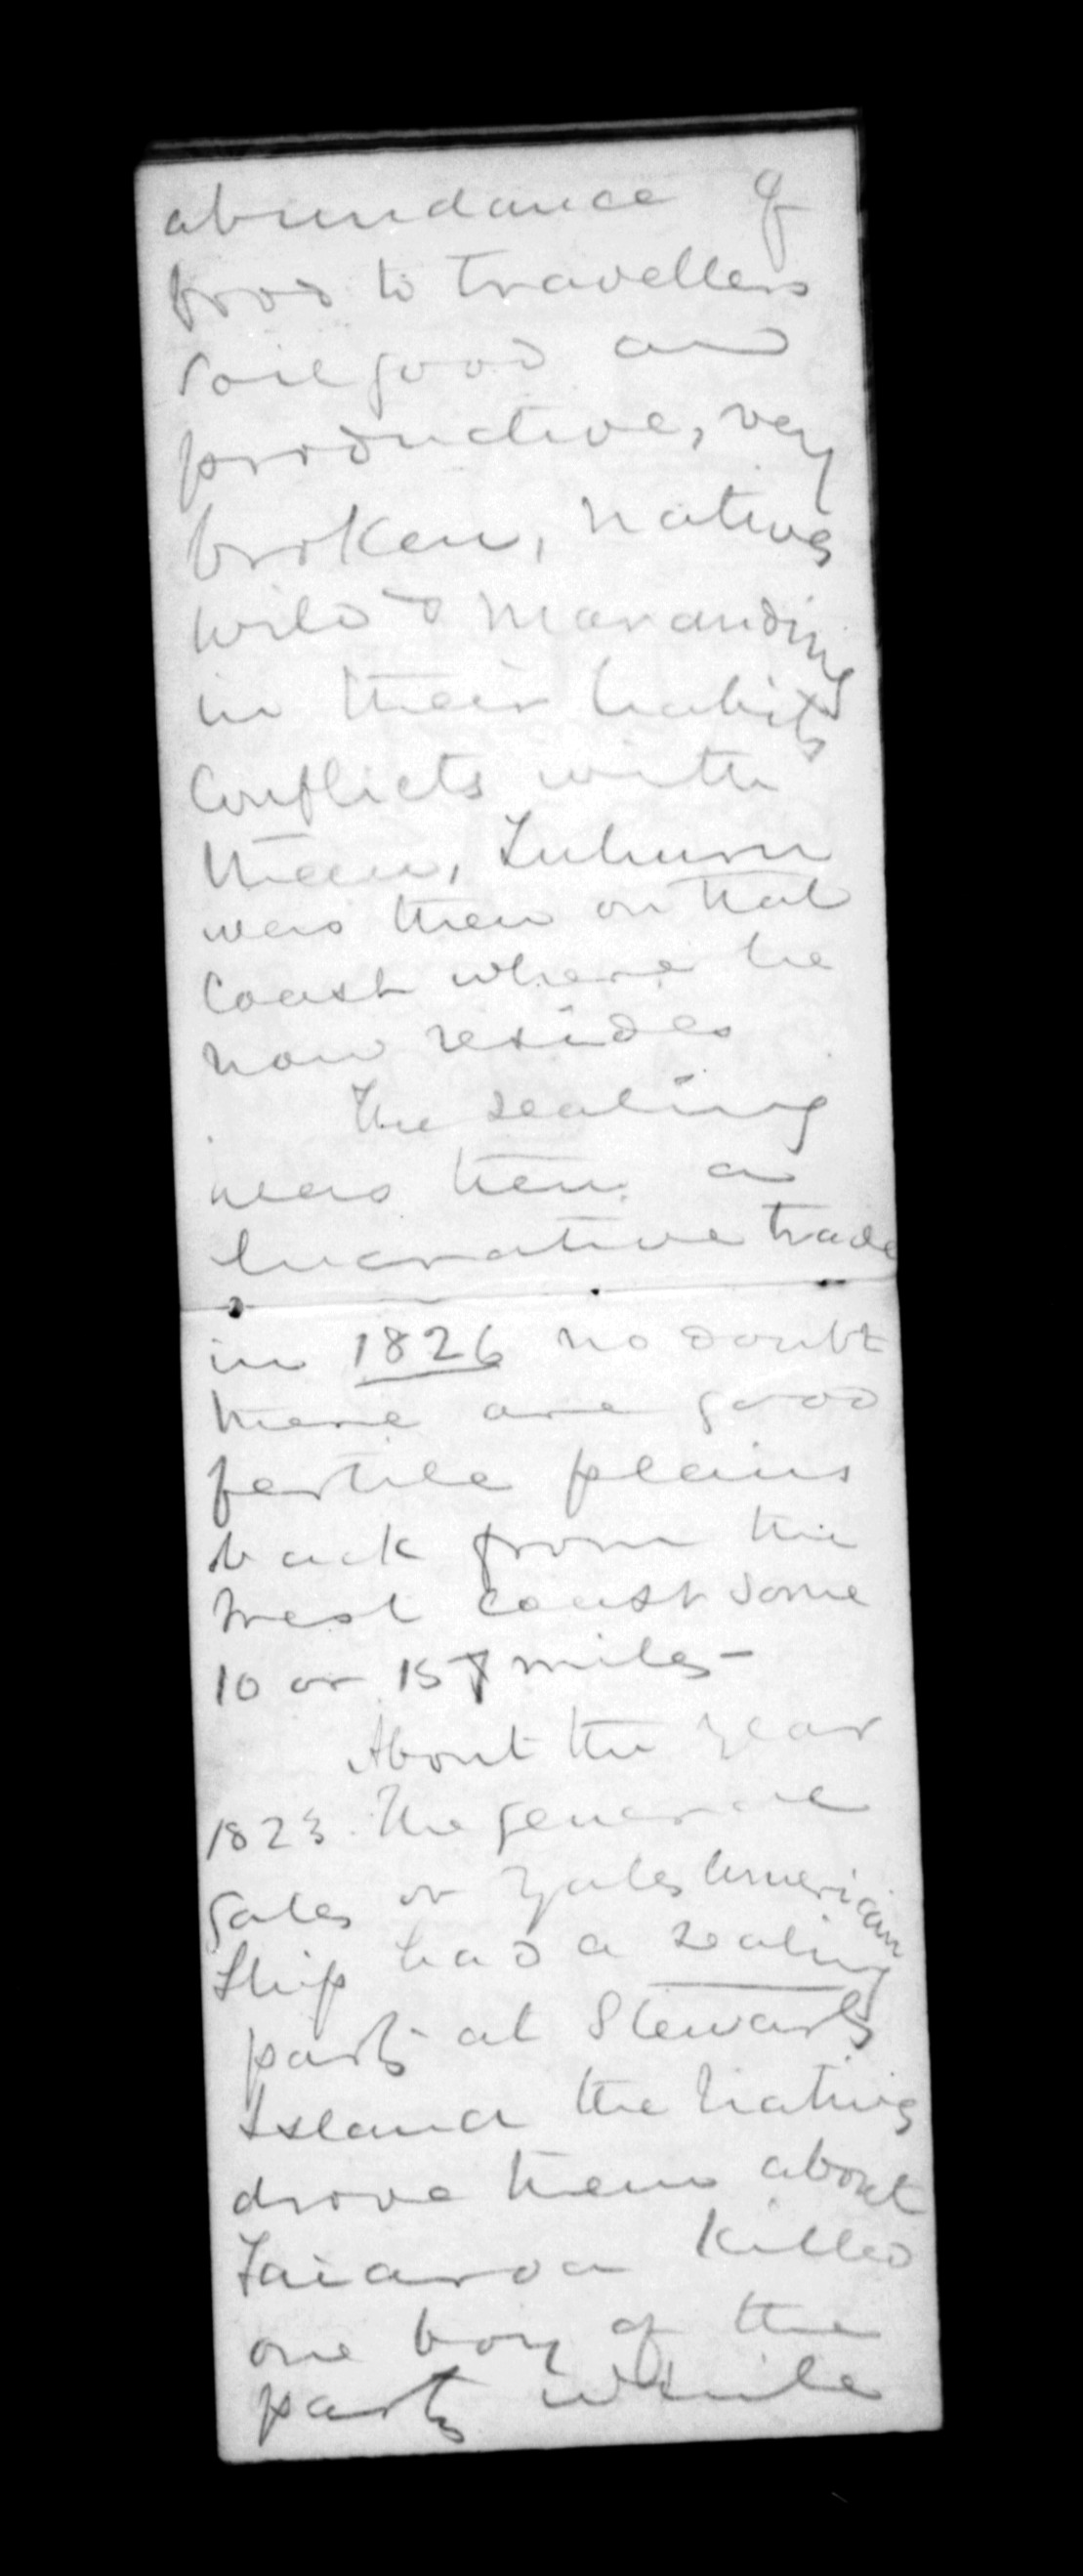 abundance of
food to travellers
soil good and
productive, very
broken, natives
wild & marauding
in their habits
Conflicts with
them, Tuhuru
was then on that
Coast where he
now resides
The sealing
was then a
lucrative trade
in 1826 no doubt
there are good
fertile plains
back from the
West coast some
10 or 15 miles -
About the year
1823. The General
Gates or Yates American
Ship had a sealing
party at Stewarts
Island the natives
drove them about
Taiaroa killed
one boy of the
party while